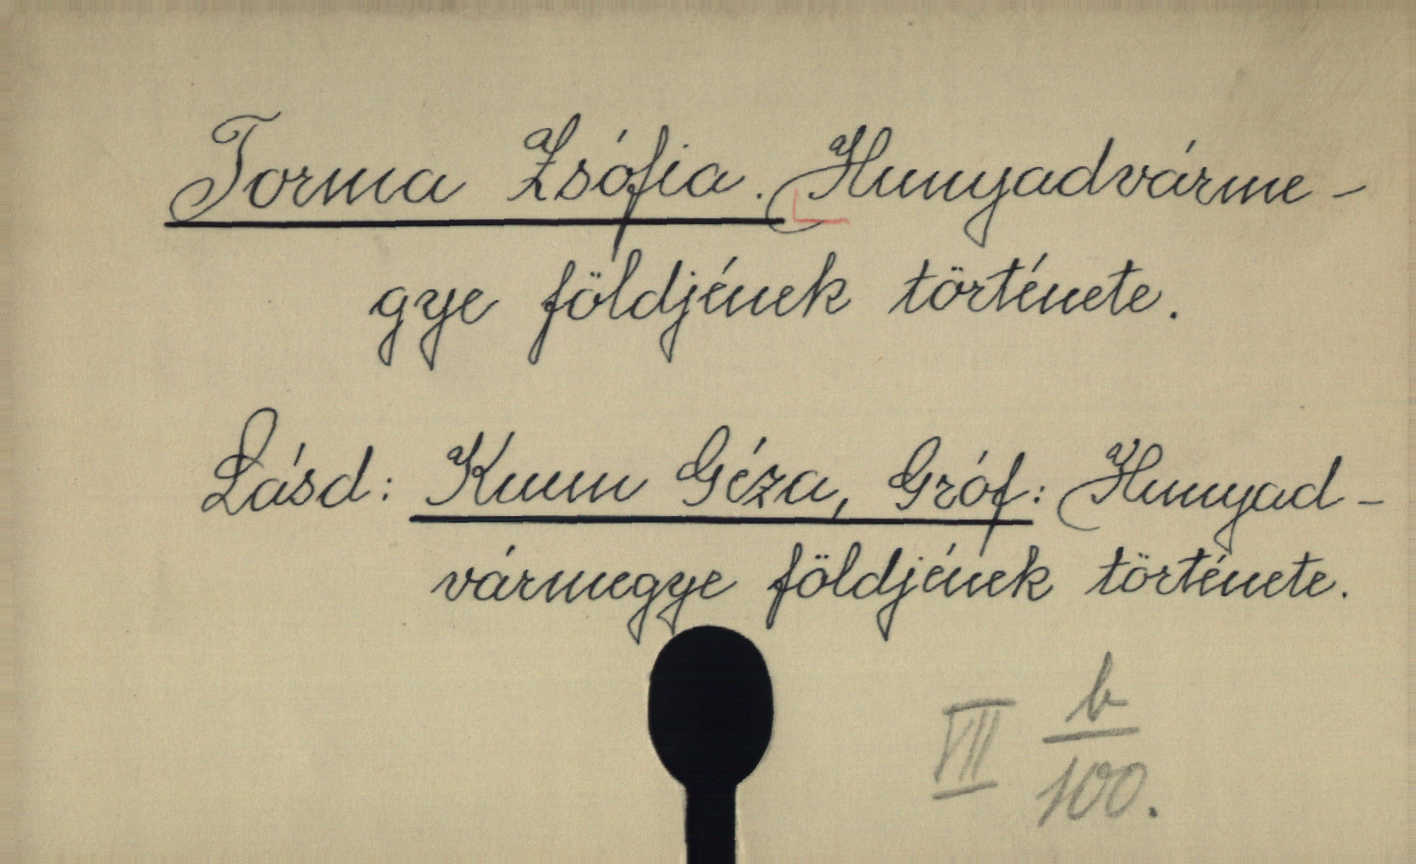 Torma Zsófia. Hunyadvárme-
gye földjének története.
Lásd: Kuun Géza, Gróf: Hunyad-
vármegye földjének története.
VII b/100.